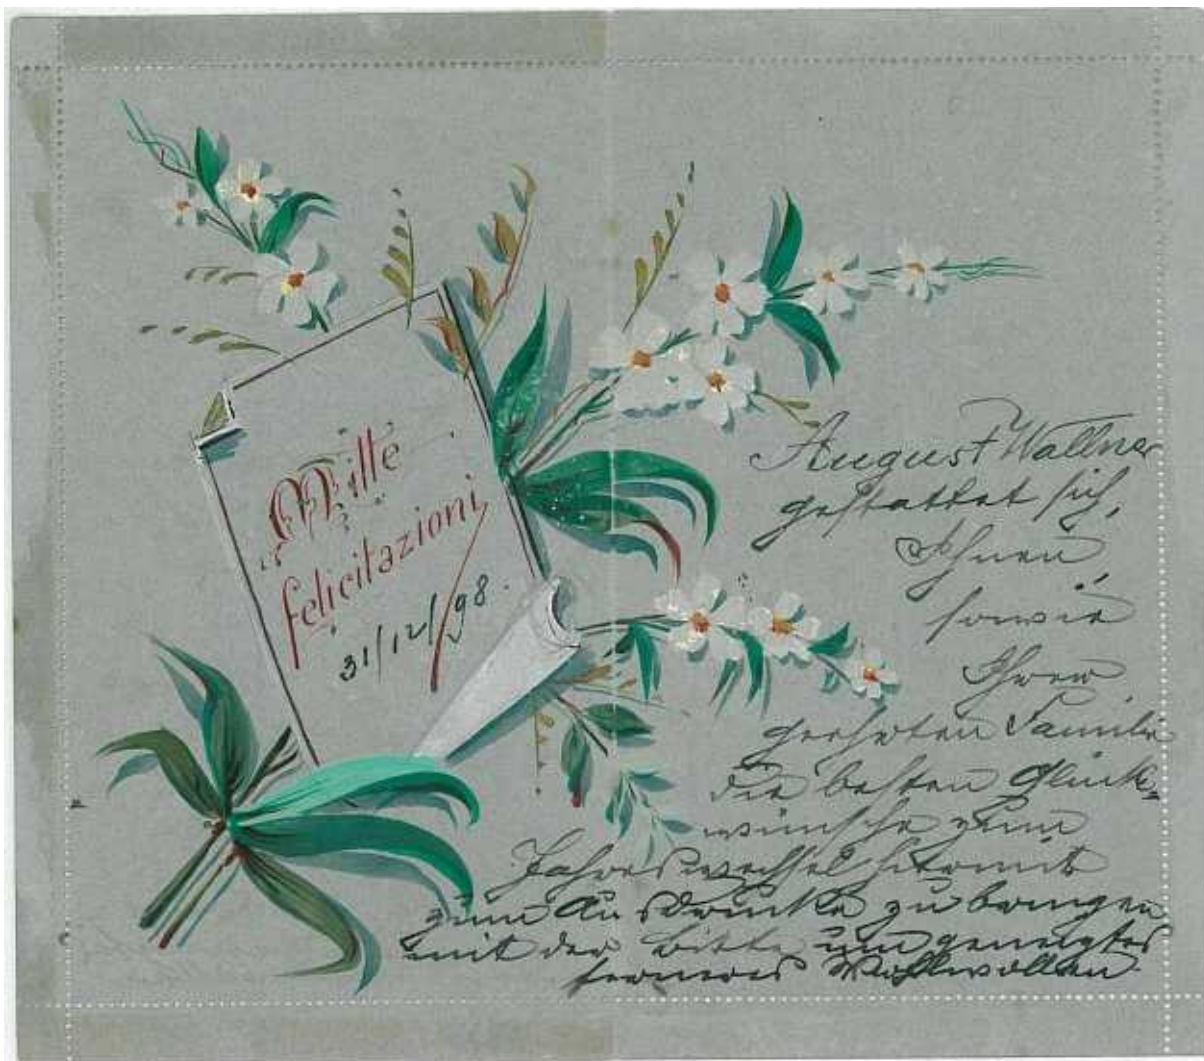 Mille
felicitazioni
31/12/98.
August Wallner
gestattet sich,
Ihnen
sowie
Ihrer
geehrten Familie
die besten Glück-
wünsche zum
Jahreswechsel hiermit
zum Ausdrucke zu bringen
mit der Bitte um geneigtes
ferneres Wohlwollen.